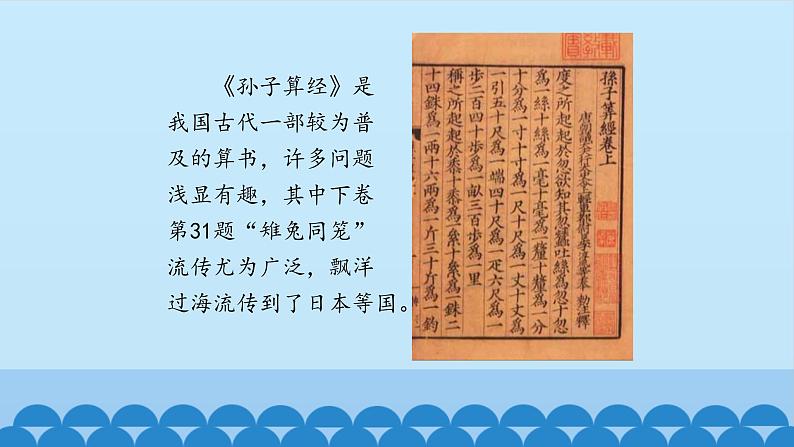 《孙子算经》是
我国古代一部较为普
及的算书，许多问题
浅显有趣，其中下卷
第31题“雉兔同笼”
流传尤为广泛，飘洋
过海流传到了日本等国。
孫子筭經卷上
度之所起起於忽欲知其忽蠶吐絲爲忽十忽
爲一絲十絲爲一毫十毫爲一釐十釐爲一分
十分爲一寸十寸爲一尺十尺爲一丈十丈爲
一引五十尺爲一端四十尺爲一疋六尺爲一
步二百四十步爲一畝三百步爲一里
稱之所起起於黍十黍爲一絫十絫爲一銖二
十四銖爲一兩十六兩爲一斤三十斤爲一鈞